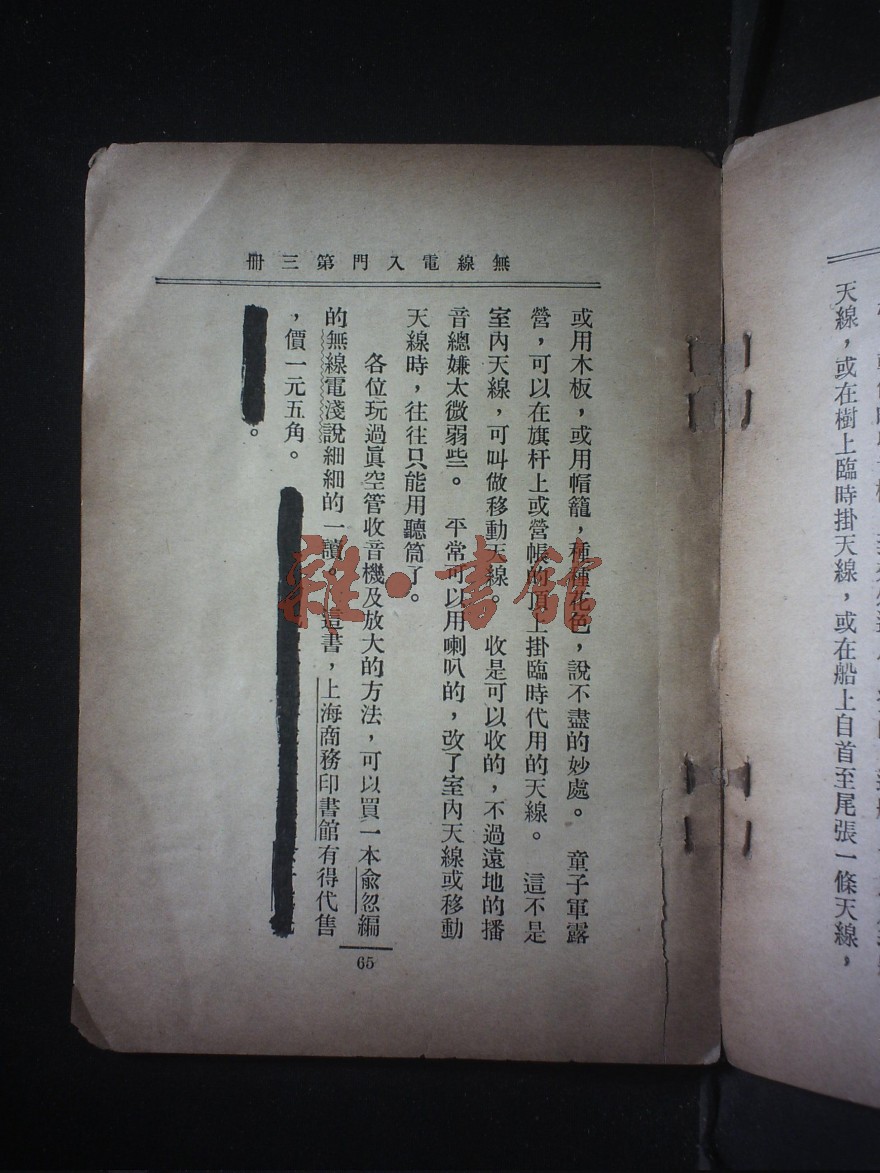 天線，或在樹上臨時掛天線，或在船上自首至尾張一條天線，
無線電入門第三冊
或用木板，或用帽籠，種種花色，說不盡的妙處。 童子軍露
營，可以在旗杆上或營帳的頂上掛臨時代用的天線。 這不是
室內天線，可叫做移動天線。 收是可以收的，不過遠地的播
音總嫌太微弱些。 平常可以用喇叭的，改了室內天線或移動
天線時，往往只能用聽筒了。
各位玩過眞空管收音機及放大的方法，可以買一本俞忽編
的無線電淺說細細的一讀。 這書，上海商務印書館有得代售
，價一元五角。
。
65
雜·書館